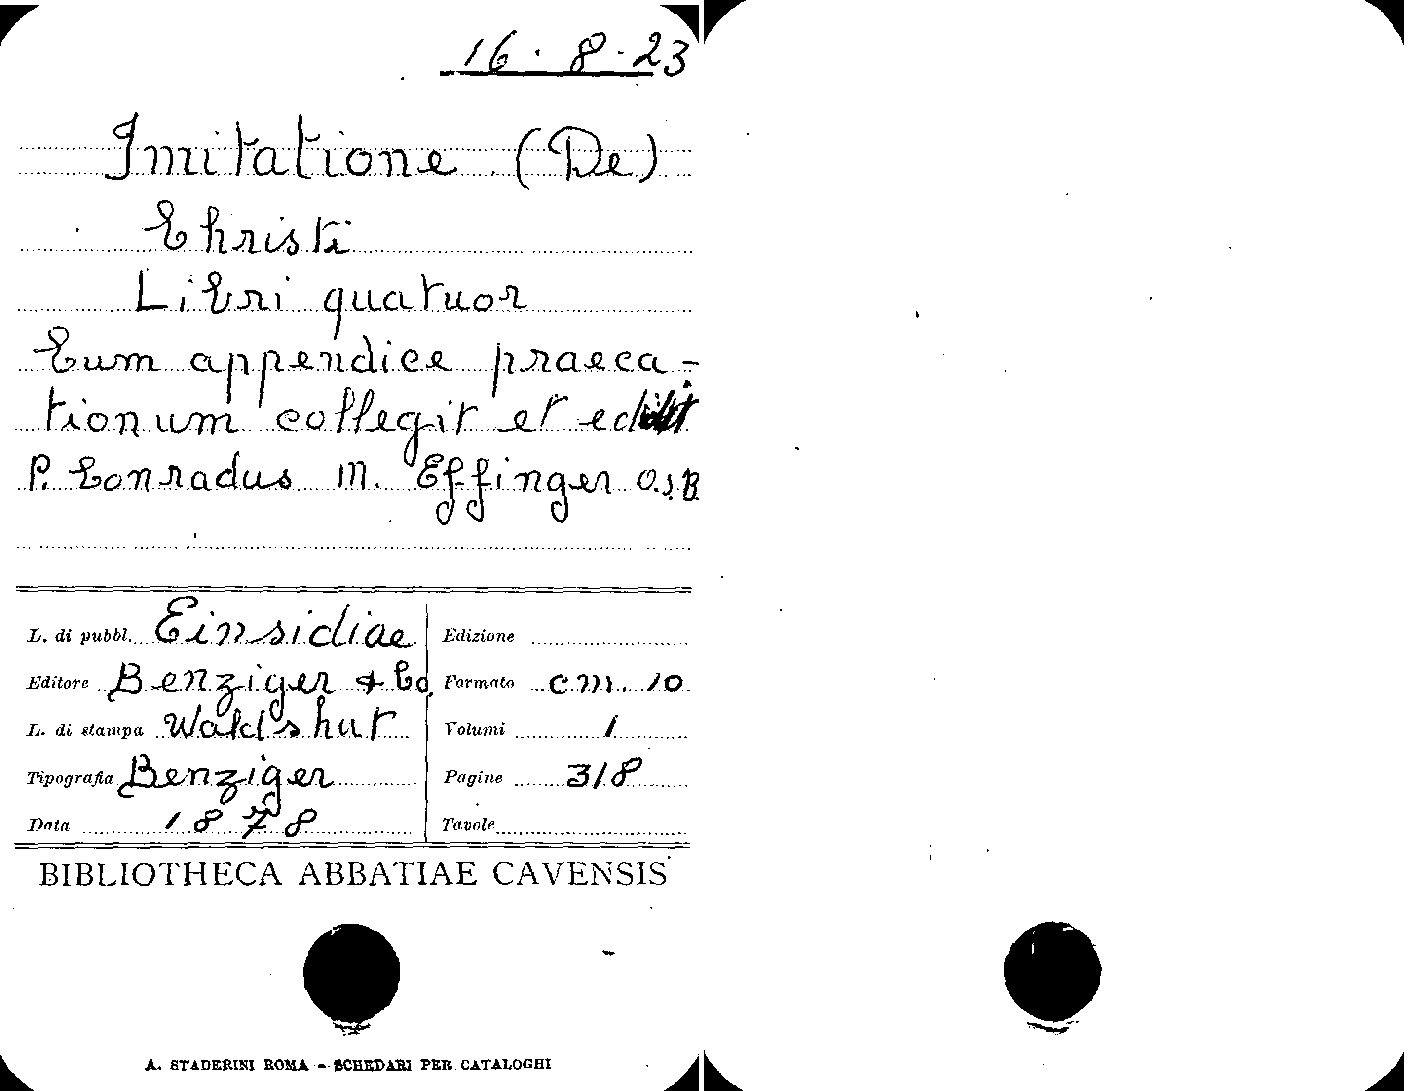 16 . 8 . 23
Imitatione (De)
Christi
Libri quatuor
Cum appendice praeca-
tionum collegit et edidit
P. Conradus M. Effinger O.S.B
L. di pubbl. Einsidiae
Editore Benziger & Co.
L. di stampa Waldshut
Tipografia Benziger
Data 1878
Edizione
Formato cm. 10
Volumi 1
Pagine 318
Tavole
BIBLIOTHECA ABBATIAE CAVENSIS
A. STADERINI ROMA - SCHEDARI PER CATALOGHI